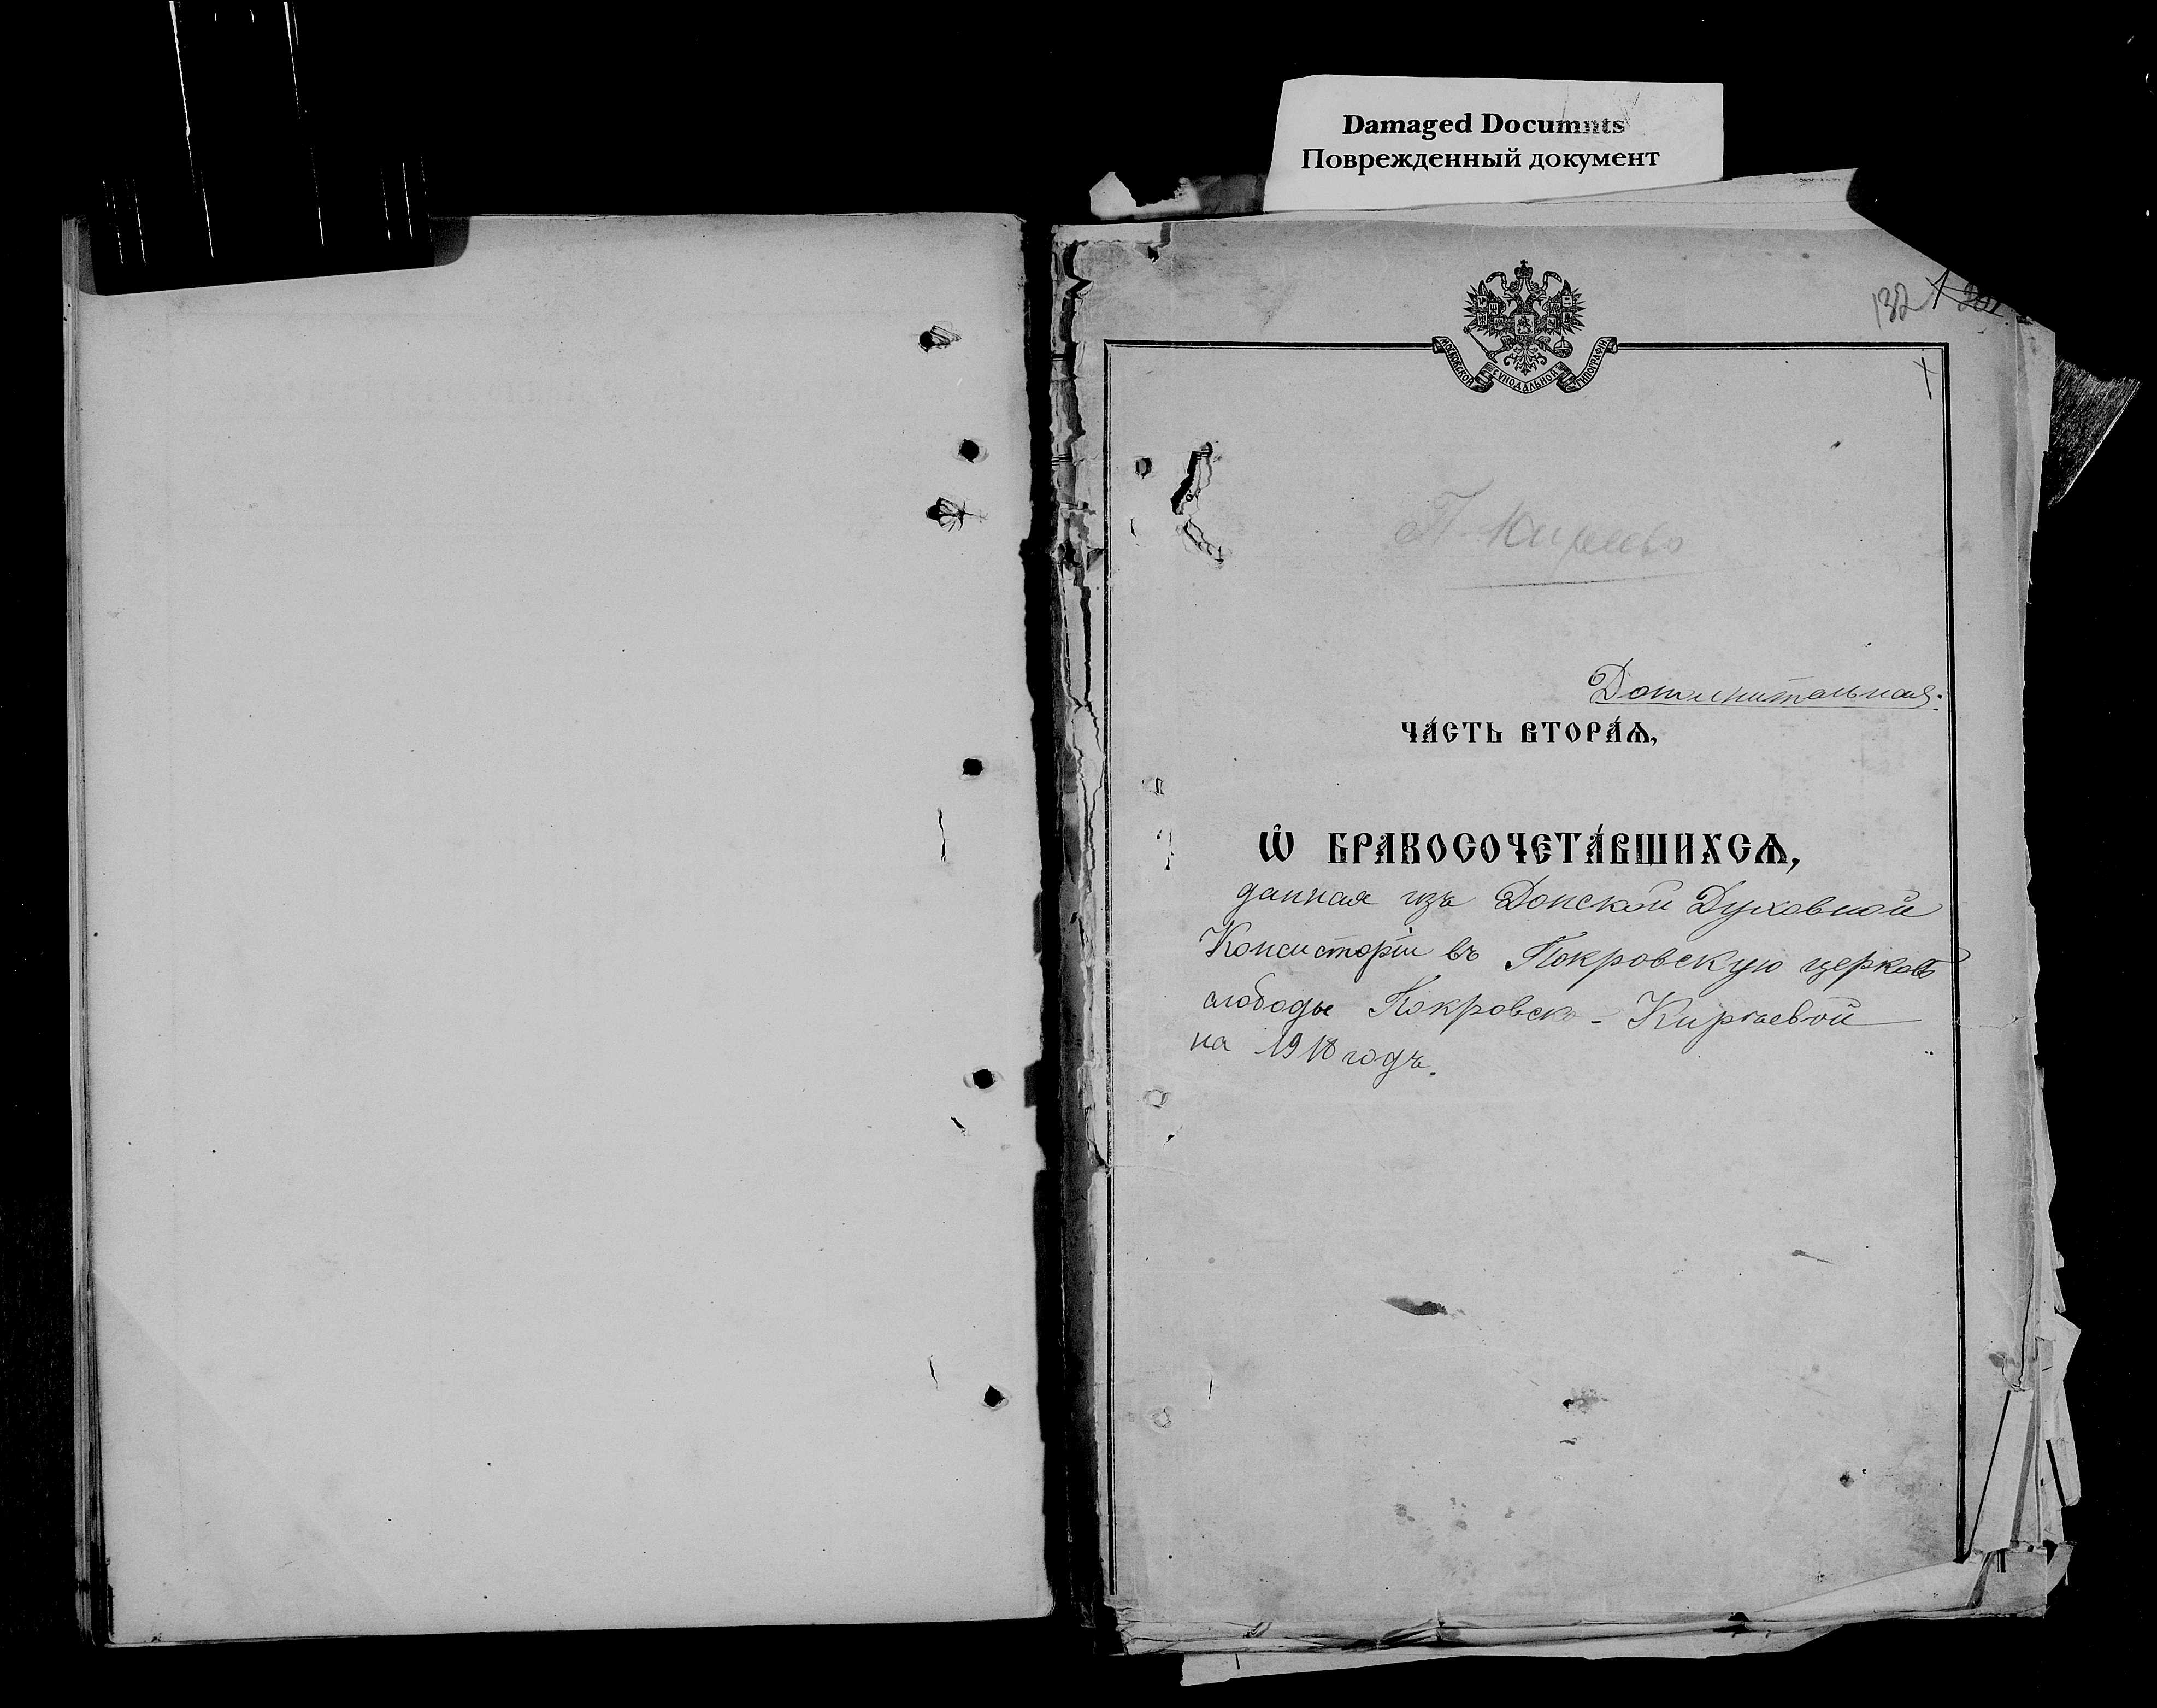 Damaged Documnts
Поврежденный документ
132
МОСКОВСКОЙ СѴНОДАЛЬНОЙ ТИПОГРАФІИ
Дополнительная.
ЧА́СТЬ ВТОРА́Ѧ,
Ѽ БРАКОСОЧЕТА́ВШИХСѦ,
данная изъ Донской Духовной
Консисторіи въ Покровскую церковь
слободы Покровско - Киреевой
на 1918 годъ.